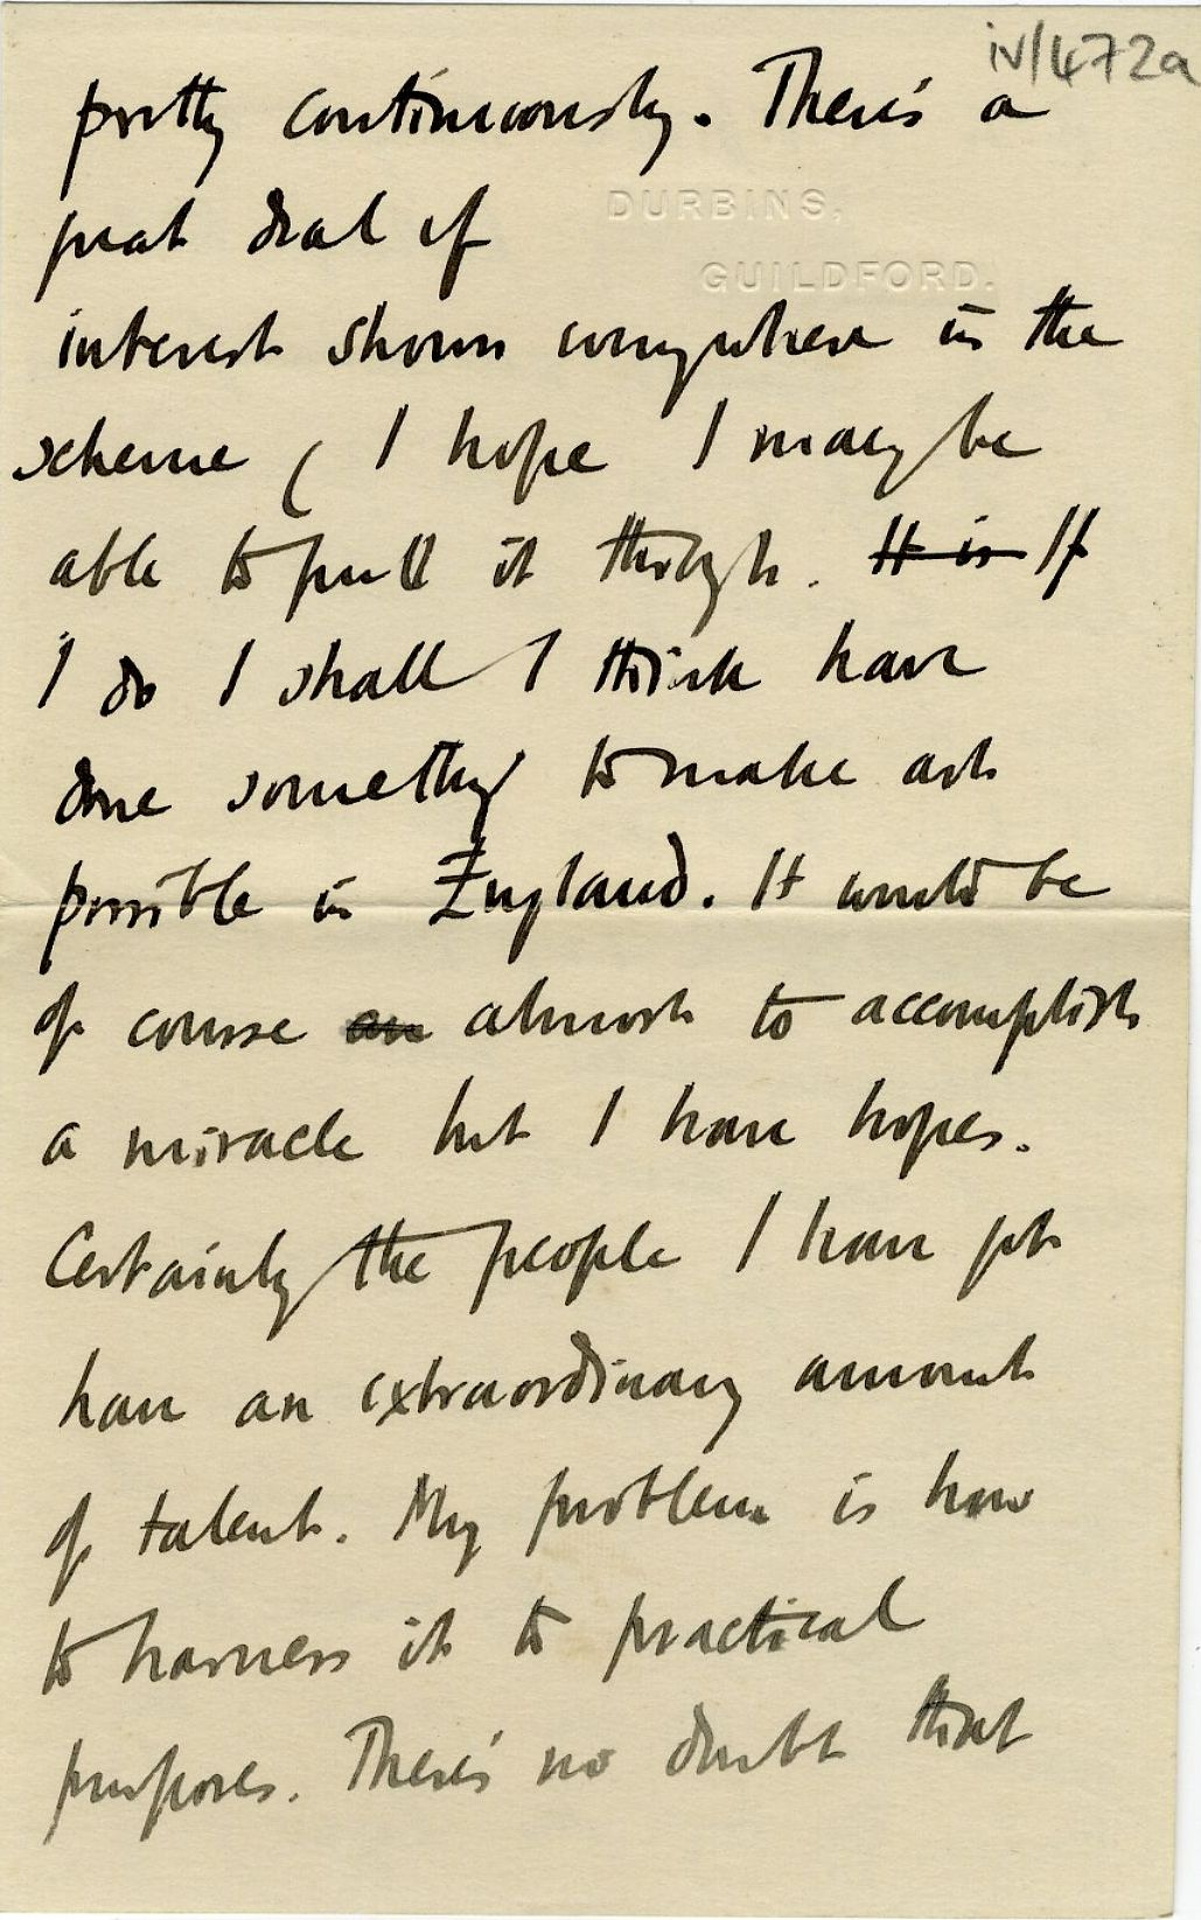 iv/472a
pretty continuously. There's a
DURBINS,
great deal of
GUILDFORD.
interest shown everywhere in the
scheme ( I hope I may be
able to pull it through. It is If
I do I shall I think have
done something to make art
possible in England. It would be
of course an almost to accomplish
a miracle but I have hopes.
Certainly the people I have got
have an extraordinary amount
of talent. My problem is how
to harness it to practical
purposes. There's no doubt that